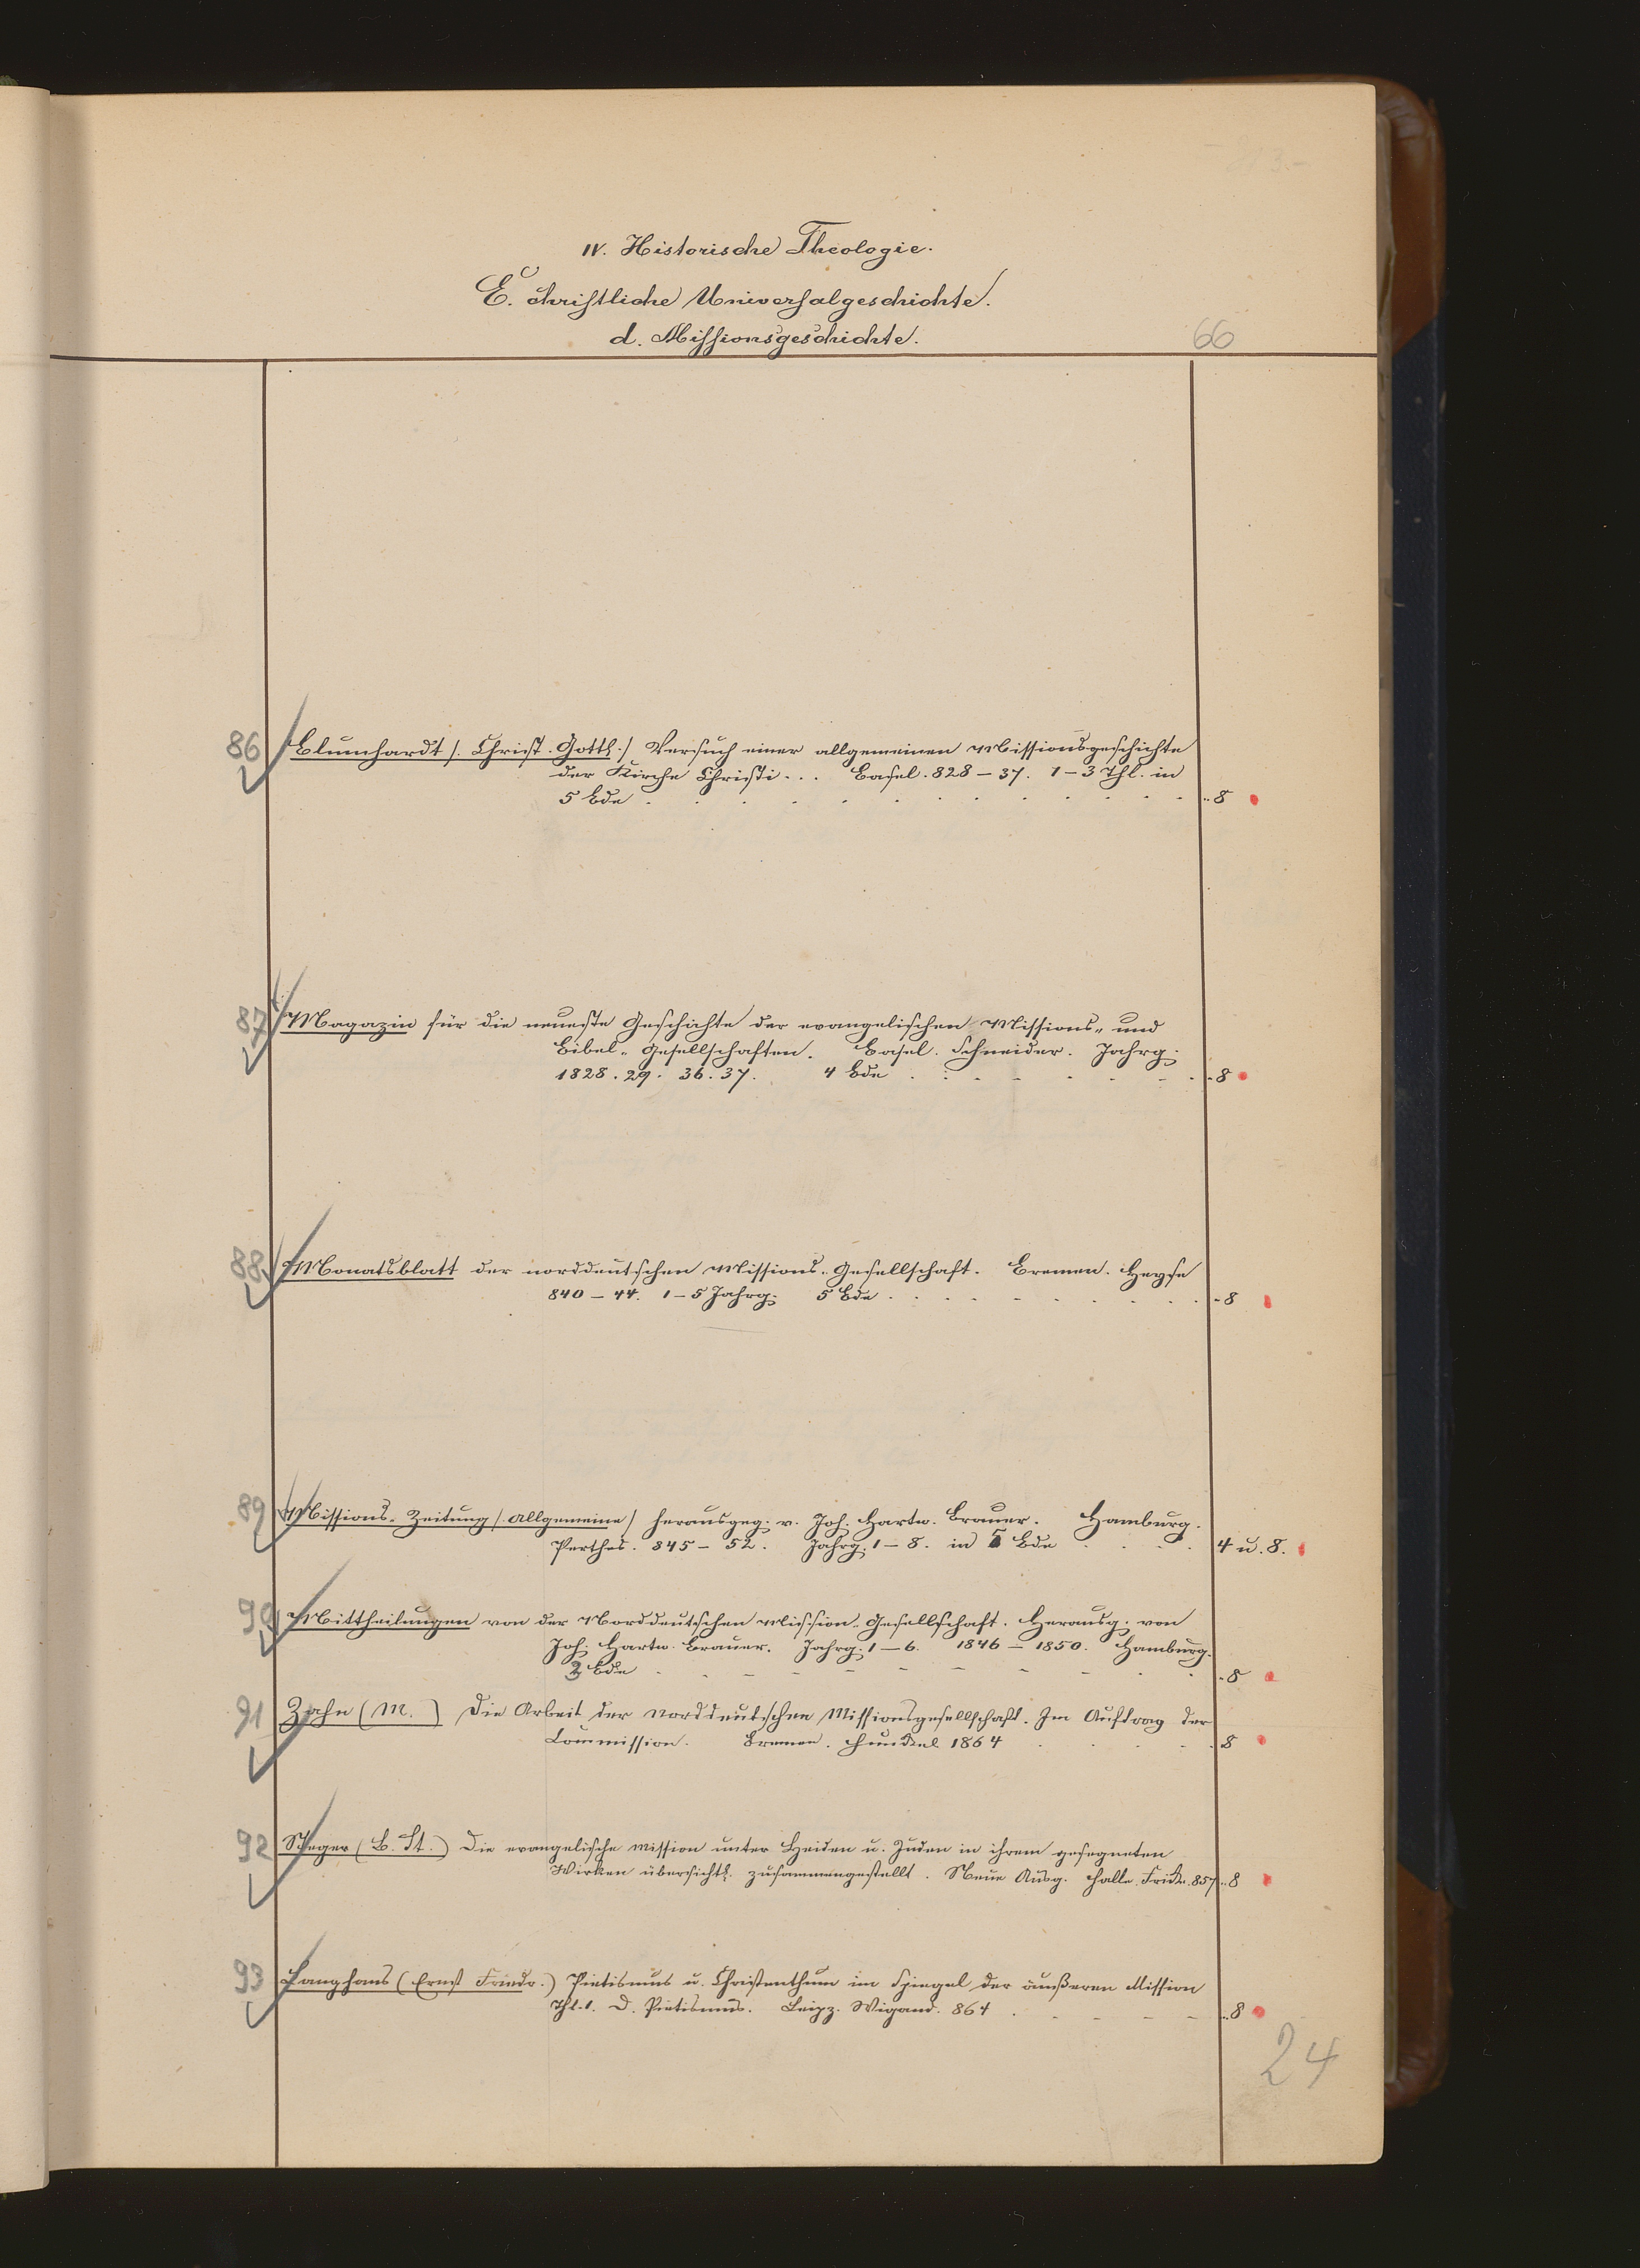 IV. Historische Theologie.
E. Christliche Universalgeschichte.
d. Missionsgeschichte.
66
86 Blumhardt /. Christ. Gotth./ Versuch einer allgemeinen Missionsgeschichte
der Kirche Christi... Basel. 828–37. 1–3 Thl. in
5 Bde 8
87 Magazin für die neueste Geschichte der evangelischen Missions- und
Bibel-Gesellschaften. Basel. Schneider. Jahrg.
1828. 29. 36. 37. 4 Bde 8
88 Monatsblatt der norddeutschen Missions-Gesellschaft. Bremen. Heyse
840–44. 1–5 Jahrg. 5 Bde 8
89 Missions-Zeitung /allgemeine/ herausgeg. v. Joh. Hartw. Brauer. Hamburg.
Perthes. 845–52. Jahrg. 1–8. in 5 Bde 4 u. 8.
90 Mittheilungen von der Norddeutschen Mission-Gesellschaft. Herausg. von
Joh. Hartw. Brauer. Jahrg. 1–6. 1846–1850. Hamburg.
2 Bde 8
91 Zahn (M.) Die Arbeit der norddeutschen Missionsgesellschaft. Im Auftrag der
Commission. Bremen. 1864 8
92 Steger (B. St.) Die evangelische Mission unter Heiden u. Juden in ihrem gesegneten
Wirken übersichtl. zusammengestellt. Neue Ausg. Halle. Fricke. 857 8
93 Langhans (Ernst Friedr.) Pietismus u. Christenthum im Spiegel der äußeren Mission
Thl. 1. D. Pietismus. Leipz. Wigand. 864 8
24